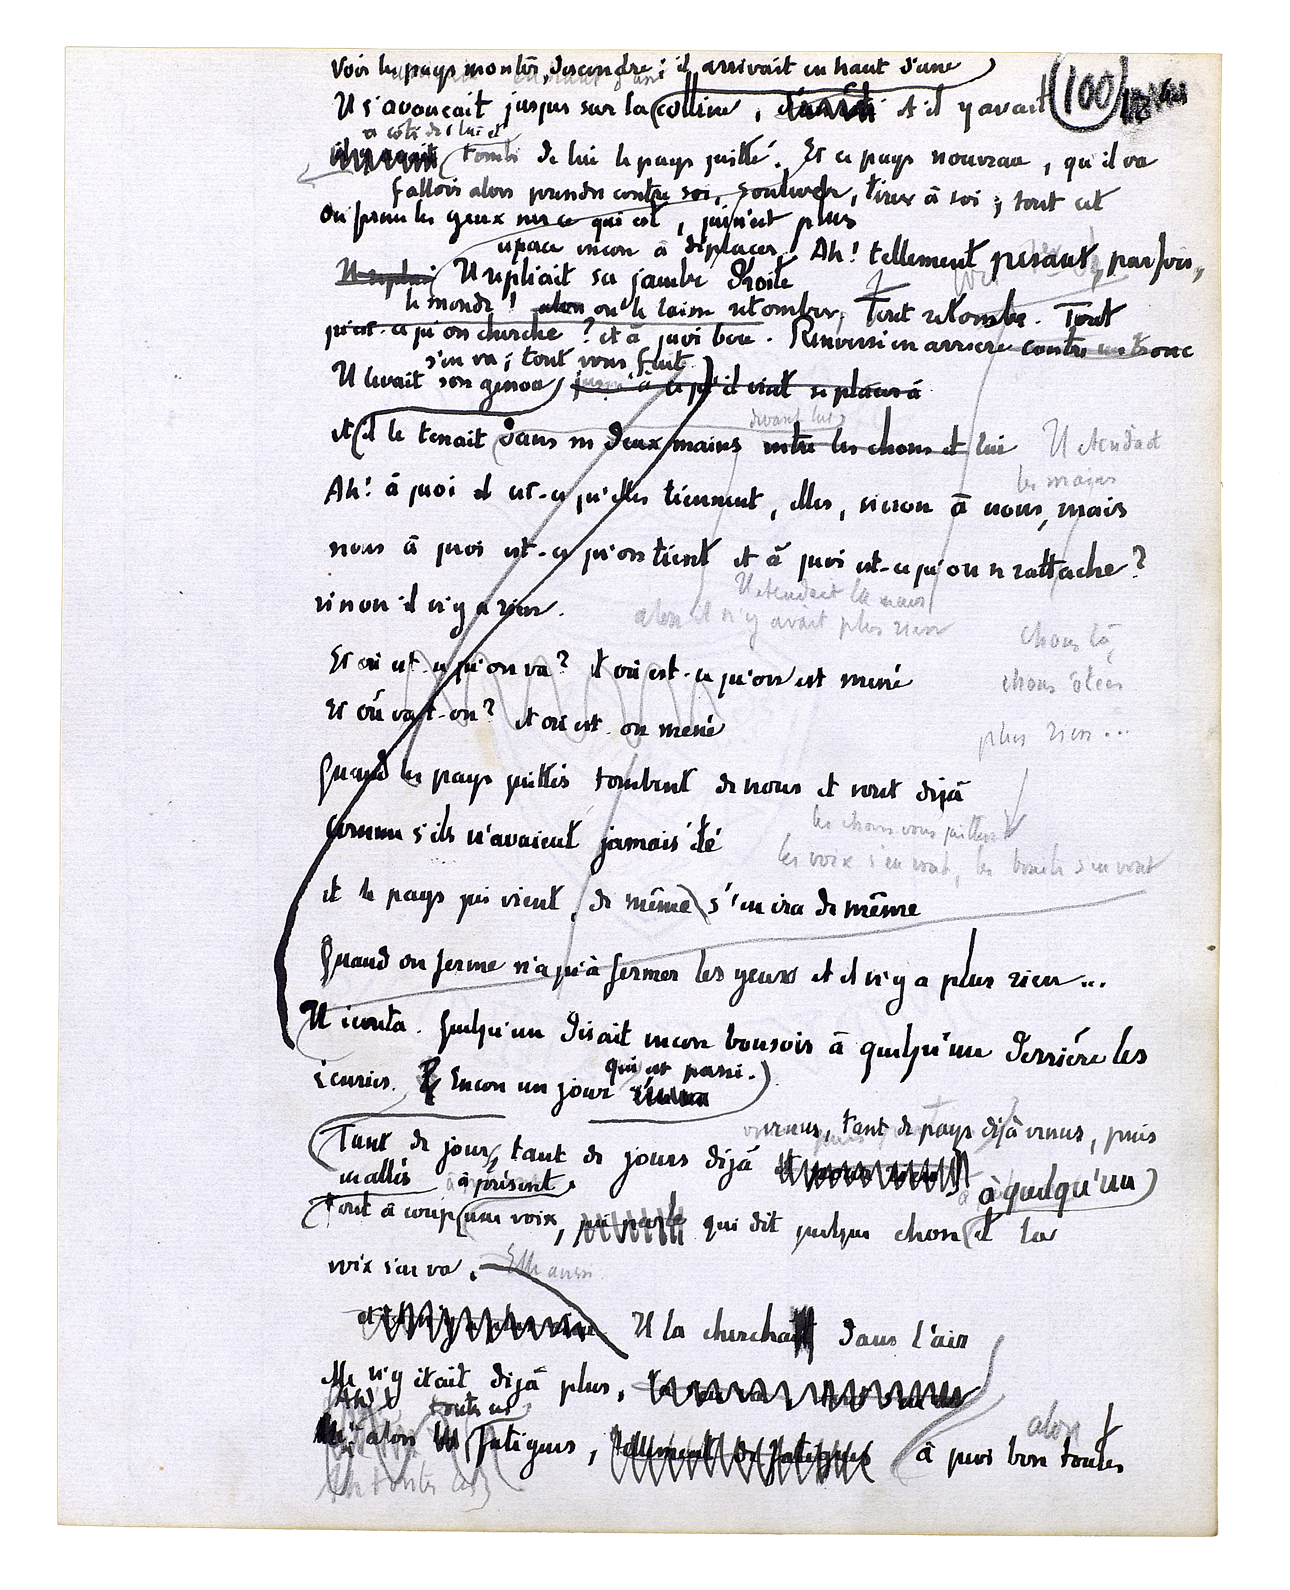 voir les pays monter, descendre ; il arrivait en haut d'une
Il s'avançait jusque sur la colline, et il y avait (100)
à côté de lui et
tombé de lui le pays quitté. Et ce pays nouveau, qu'il va
falloir alors prendre contre soi, soulever, tirer à soi ; tout cet
on pose les yeux sur ce qui est, qui n'est plus
espace encore à déplacer. Ah ! tellement pesant, parfois,
Il repliait Il repliait sa jambe droite
le monde ! alors on le laisse retomber. Tout retombe. Tout
qu'est-ce qu'on cherche ? et à quoi bon. Renversé en arrière contre un tronc
s'en va ; tout vous fuit.
Il levait son genou, jusqu'à ce qu'il vînt se placer à
devant lui
et il le tenait dans ses deux mains entre les choses et lui Il étendait
les mains
Ah ! à quoi est-ce qu'elles tiennent, elles, sinon à nous, mais
nous à quoi est-ce qu'on tient et à quoi est-ce qu'on se rattache ?
Il étendait la main
sinon il n'y a rien.
alors il n'y avait plus rien
choses là,
Et où est-ce qu'on va ? et où est-ce qu'on est mené
choses ôtées
Et où va-t-on ? et où est-on mené
plus rien...
Quand les pays quittés tombent de nous et sont déjà
les choses vous quittent
comme s'ils n'avaient jamais été
les voix s'en vont, les bruits s'en vont
et le pays qui vient, de même s'en ira de même
Quand on ferme n'a qu'à fermer les yeux et il n'y a plus rien...
Il écouta. Quelqu'un disait encore bonsoir à quelqu'un derrière les
qui est passé.
écuries. Encore un jour
venus, tant de pays déjà venus, puis
Tant de jours, tant de jours déjà
en allés à présent. à quelqu'un
Tout à coup une voix, qui parle qui dit quelque chose et la
voix s'en va. Elle aussi
Il la cherchait dans l'air
Elle n'y était déjà plus.
Ah ! toutes ces alors
alors fatigues, tellement de fatigues à quoi bon toutes
Ah toutes ces